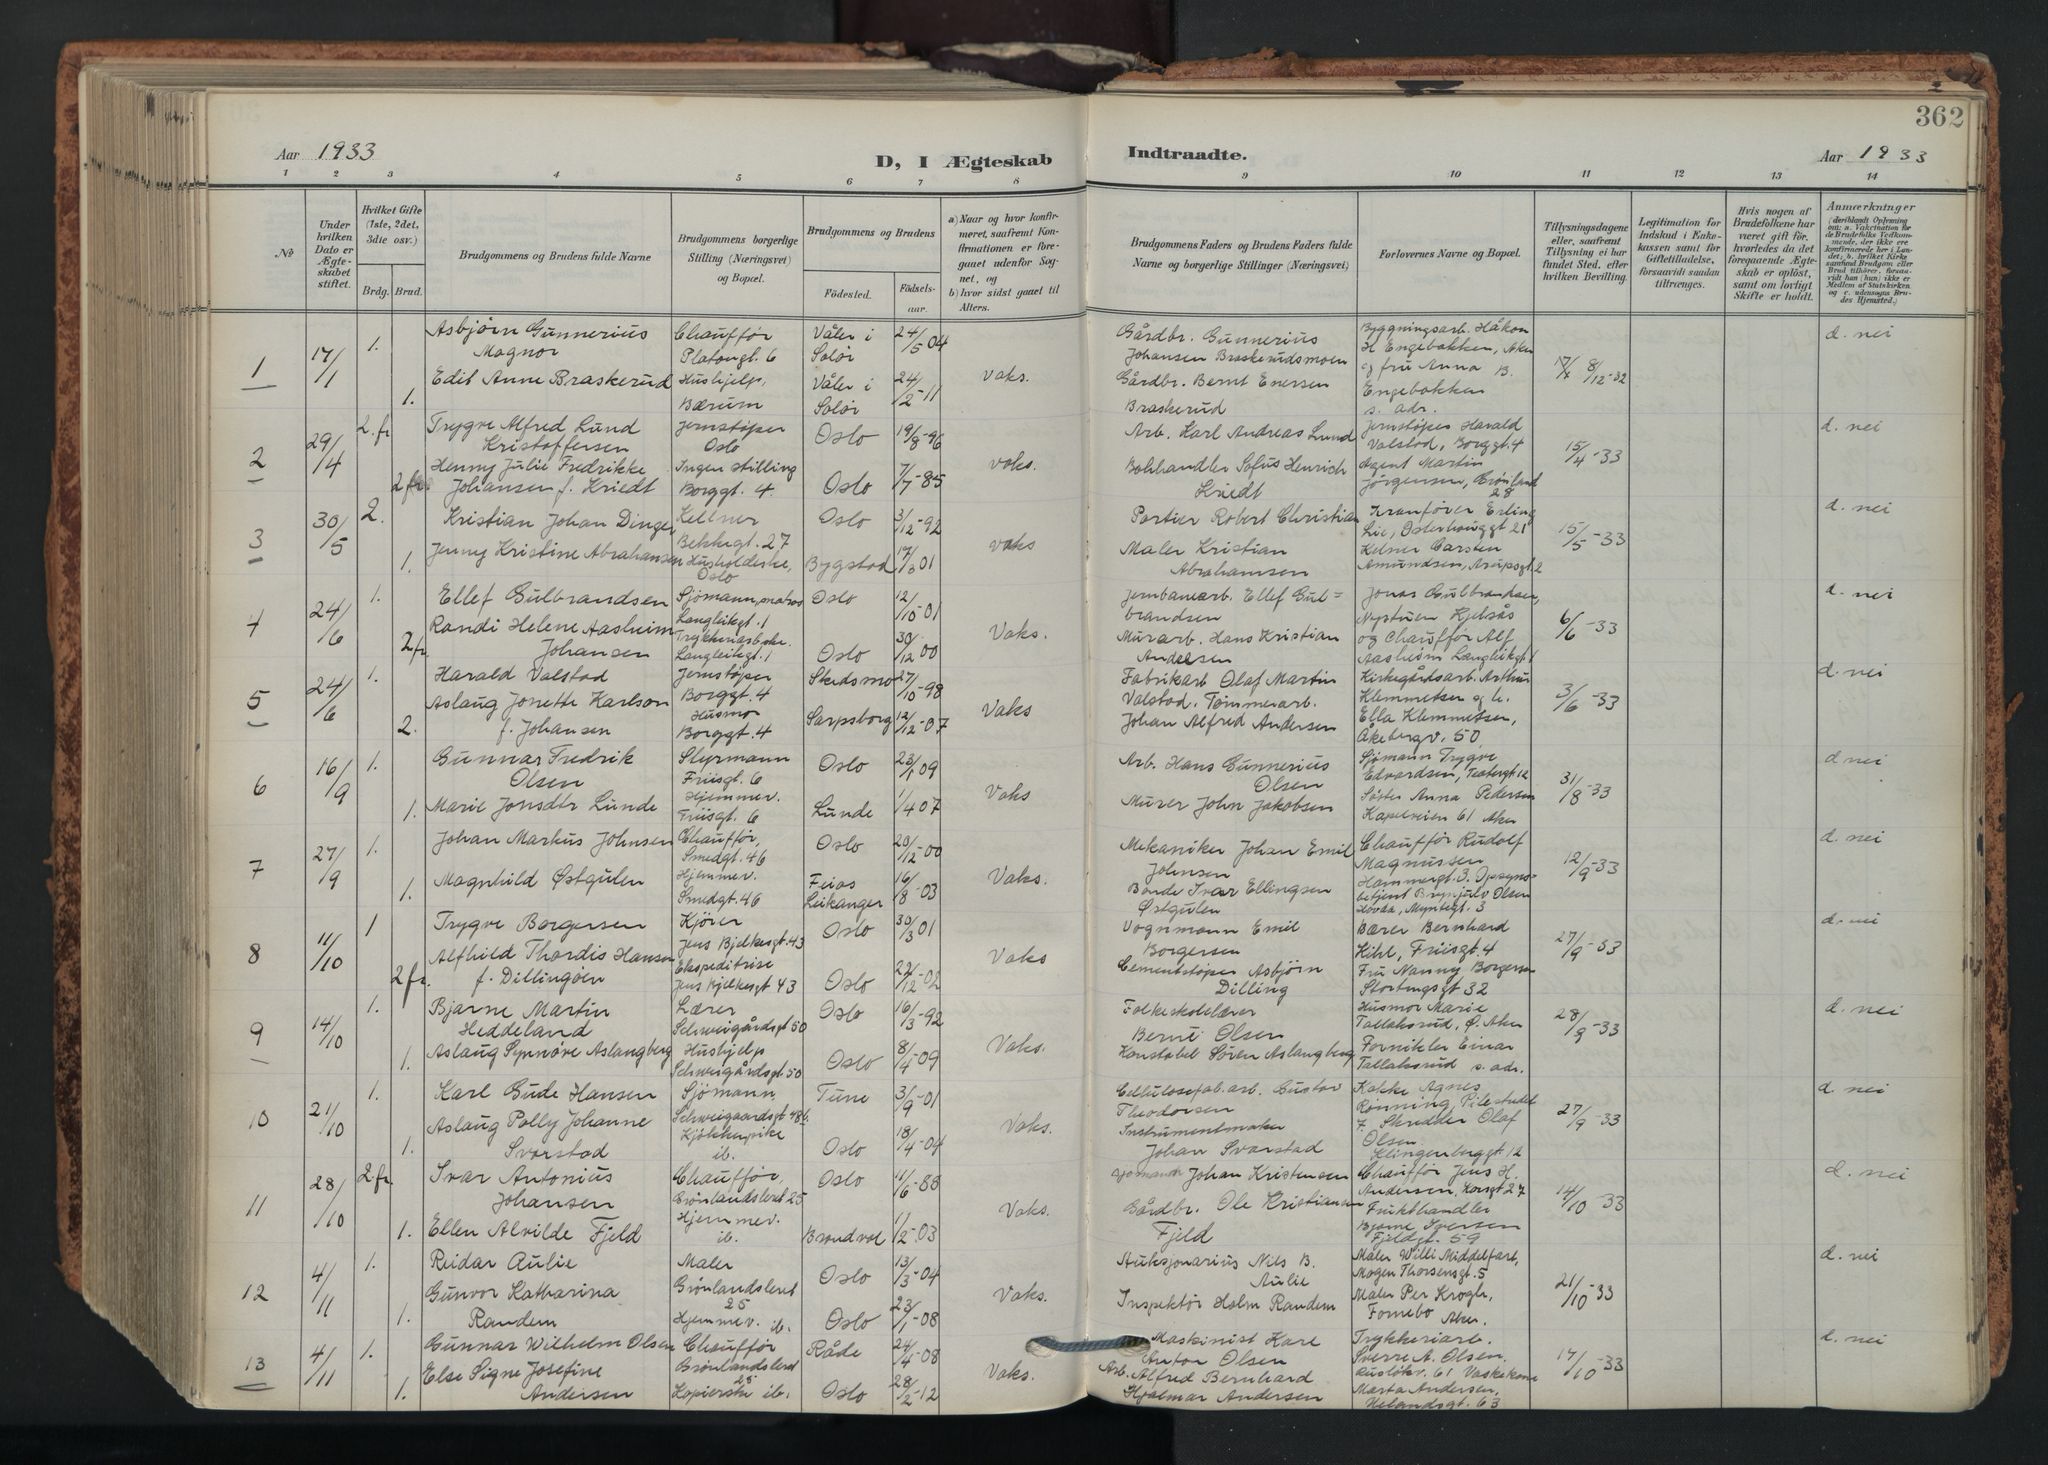 362
Aar 1933
D, I Ægteskab
Indtraadte.
Aar 1933
1 2 3 4 5 6 7 8 9 10 11 12 13 14
No
Under hvilken Dato er Ægteskabet stiftet.
Hvilket Gifte (1ste, 2det, 3die osv.)
Brdg. Brud.
Brudgommens og Brudens fulde Navne
Brudgommens borgerlige Stilling (Næringsvei) og Bopæl.
Brudgommens og Brudens
Fødested. Fødselsaar.
a) Naar og hvor konfirmeret, saafremt Konfirmationen er foregaaet udenfor Sognet, og
b) hvor sidst gaaet til Alters.
Brudgommens Faders og Brudens Faders fulde Navne og borgerlige Stillinger (Næringsvei)
Forlovernes Navne og Bopæl.
Tillysningsdagene eller, saafremt Tillysning ei har fundet Sted, efter hvilken Bevilling.
Legitimation for Indskud i Enkekassen samt for Giftetilladelse, forsaavidt saadan tiltrænges.
Hvis nogen af Brudefolkene har været gift før, hvorledes da det foregaaende Ægteskab er opløst, samt om lovligt Skifte er holdt.
Anmærkninger
(deriblandt Oplysning om: a. Vakcination for de Brudefolks Vedkommende, der ikke ere konfirmerede her i Landet; b. hvilket Kirkesamfund Brudgom eller Brud tilhører, forsaavidt han (hun) ikke er Medlem af Statskirken og c. udensogns Brudes Hjemsted.)
1 17/1 1. Asbjørn Gunnerius Magnor Chauffør Platousgt. 6 Våler i Solør 24/5 04
1. Edit Anne Braskerud Hushjelp, Bærum Våler i Solør 24/2-11 Vaks.
Gårdbr. Gunnerius Johansen Braskerudsmoen
Gårdbr. Bernt Enersen Braskerud
Byggningsarb. Håkon H Engebakken, Aker og fru Anna B. Engebakken s. adr.
8/12-32 d. nei
2 29/4 2. fr Trygve Alfred Lund Kristoffersen Jernstøper Oslo Oslo 19/8-96
2 fr. Henny Julie Fredrikke Johansen f. Kriedt Ingen stilling Borggt. 4. Oslo 7/7-85 Voks.
Arb. Karl Andreas Lund
Bokhandler Sofus Henrich Kriedt
Jernstøper Harald Valstad, Borggt. 4
Agent Martin Jørgensen, Grønland 28
15/4-33 d. nei
3 30/5 2. Kristian Johan Dinger Kellner Bekkegt. 27 Oslo 3/12-92
1. Jenny Kristine Abrahansen Husholderske, Oslo Bygstad 17/3 01 Vaks
Portier Robert Christian
Maler Kristian Abrahamsen
Kranfører Erling Lie, Osterhausgt 21
Kelner Carsten Amundsen, Arupsgt. 2
15/5-33 d. nei
4 24/6 1. Ellef Gulbrandsen Sjømann, matros Langleikgt. 1 Oslo 12/10-01
2 fr. Randi Helene Aasheim Johansen Langleikgt. 1 Oslo 30/12 00 Vaks.
Jernbanearb. Ellef Gulbrandsen
Murarb. Hans Kristian Andersen
Jonas Gulbrandsen, Nystuen Kjelsås og Chauffør Alf Aasheim Langleikgt 1
6/6-33 d. nei
5 24/6 1. Harald Valstad Jernstøper Borggt. 4 Skedsmo 27/10-98
2. Aslaug Jonette Karlson f. Johansen Husmor Borggt. 4 Sarpsborg 12/12-07 Vaks
Fabrikarb Olaf Martin Valstad. Tømmerarb. Johan Alfred Andersen
Kirkegårdsarb. Arthur Klemmetsen og h. Ella Klemmetsen, Åkebergv. 50
3/6-33 d. nei
6 16/9 1. Gunnar Fredrik Olsen Styrmann Friisgt. 6 Oslo 23/1 09
1. Marie Jonsdtr Lunde Hjemmev. Friisgt. 6 Lunde 1/4 07 Vaks
Arb. Hans Gunnerius Olsen
Murer John Jakobsen
Sjømann Trygve Edvardsen, Teatergt 12
Søster Anna Pedersen Kapelveien 61 Aker
31/8-33 d nei
7 27/9 1. Johan Markus Johnsen Chauffør, Smedgt. 46 Oslo 20/12-00
1. Magnhild Østgulen Hjemmev. Smedgt. 46 Feios Leikanger 16/8-03 Vaks.
Mekaniker Johan Emil Johnsen
Bonde Ivar Ellingsen Østgulen
Chauffør Rudolf Magnussen Hammergt. 3. Opsynsbetjent Brynjulv Olsen Hovda, Myntegt. 3
12/9-33 d. nei
8 11/10 1 Trygve Borgersen Kjører Jens Bjelkesgt. 43 Oslo 30/3 01
2 fr. Alfhild Thordis Hansen f. Dillingøen Ekspeditrise Jens Bjelkesgt 43 Oslo 22/12-02 Vaks
Vognmann Emil Borgersen
Cementstøper Asbjørn Dilling
Bærer Bernhard Kihl, Friisgt. 4
Fru Nanny Borgersen Stortingsgt 32
27/9-33 d. nei
9 14/10 1. Bjarne Martin Heddeland Lærer Schweigårdsgt 50 Oslo 16/3-92
1. Aslaug Synnøve Aslangberg Hushjelp Schweigårdsgt. 50 Oslo 8/4-09 Vaks.
Folkeskolelærer Bernt Olsen
Konstabel Søren Aslangberg
Husmor Marie Tallaksrud, Ø. Aker
Fornikler Einar Tallaksrud s. adr.
28/9-33 d. nei
10 21/10 1. Karl Gude Hansen Sjømann, Schweigaardsgt 48 b. Tune 3/9-01
1. Aslaug Polly Johanne Svarstad Kjøkkenpike ib. Oslo 18/4-04 Vaks.
Cellulosefab. arb. Gustav Theodorsen
Instrumentmaker Johan Svarstad
Kokke Agnes Rønning Pilestredet 7. Skredder Olaf Olsen. Klingenberggt 12
27/9-33 d. nei
11 28/10 2 fr. Ivar Antonius Johansen Chauffør, Grønlandsleret 25 Oslo 11/6-88
1. Ellen Alvilde Fjeld Hjemmev. ib. Brandval 1/2-03 Vaks.
Sjømann Johan Kristensen
Gårdbr. Ole Kristiansen Fjeld
Chauffør Jens H. Andersen, Korsgt 27
Frukthandler Bjarne Iversen Fjeldgt. 59
14/10-33 d. nei
12 4/11 1. Reidar Aulie Maler Grønlandsleret 25 Oslo 13/3-04
1. Gunvor Katharina Randem Hjemmev. ib. Oslo 23/1-08 Vaks.
Auksjonarius Nils B. Aulie
Inspektør Holm Randem
Maler Willi Middelfart, Mogen Thorsensgt. 5
Maler Per Krogh, Fornebo Aker.
21/10-33 d. nei
13 4/11 1. Gunnar Wilhelm Olsen Chauffør Grønlandsleret 25 Råde 24/4-08
1. Else Signe Josefine Andersen Kopierske ib. Oslo 28/2-12 Vaks.
Maskinist Karl Anton Olsen
Arb. Alfred Bernhard Hjalmar Andersen
Trykkeriarb. Sverre A. Olsen. 61 Vaskekone Marta Andersen, Helandsgt. 63
17/10-33 d. nei